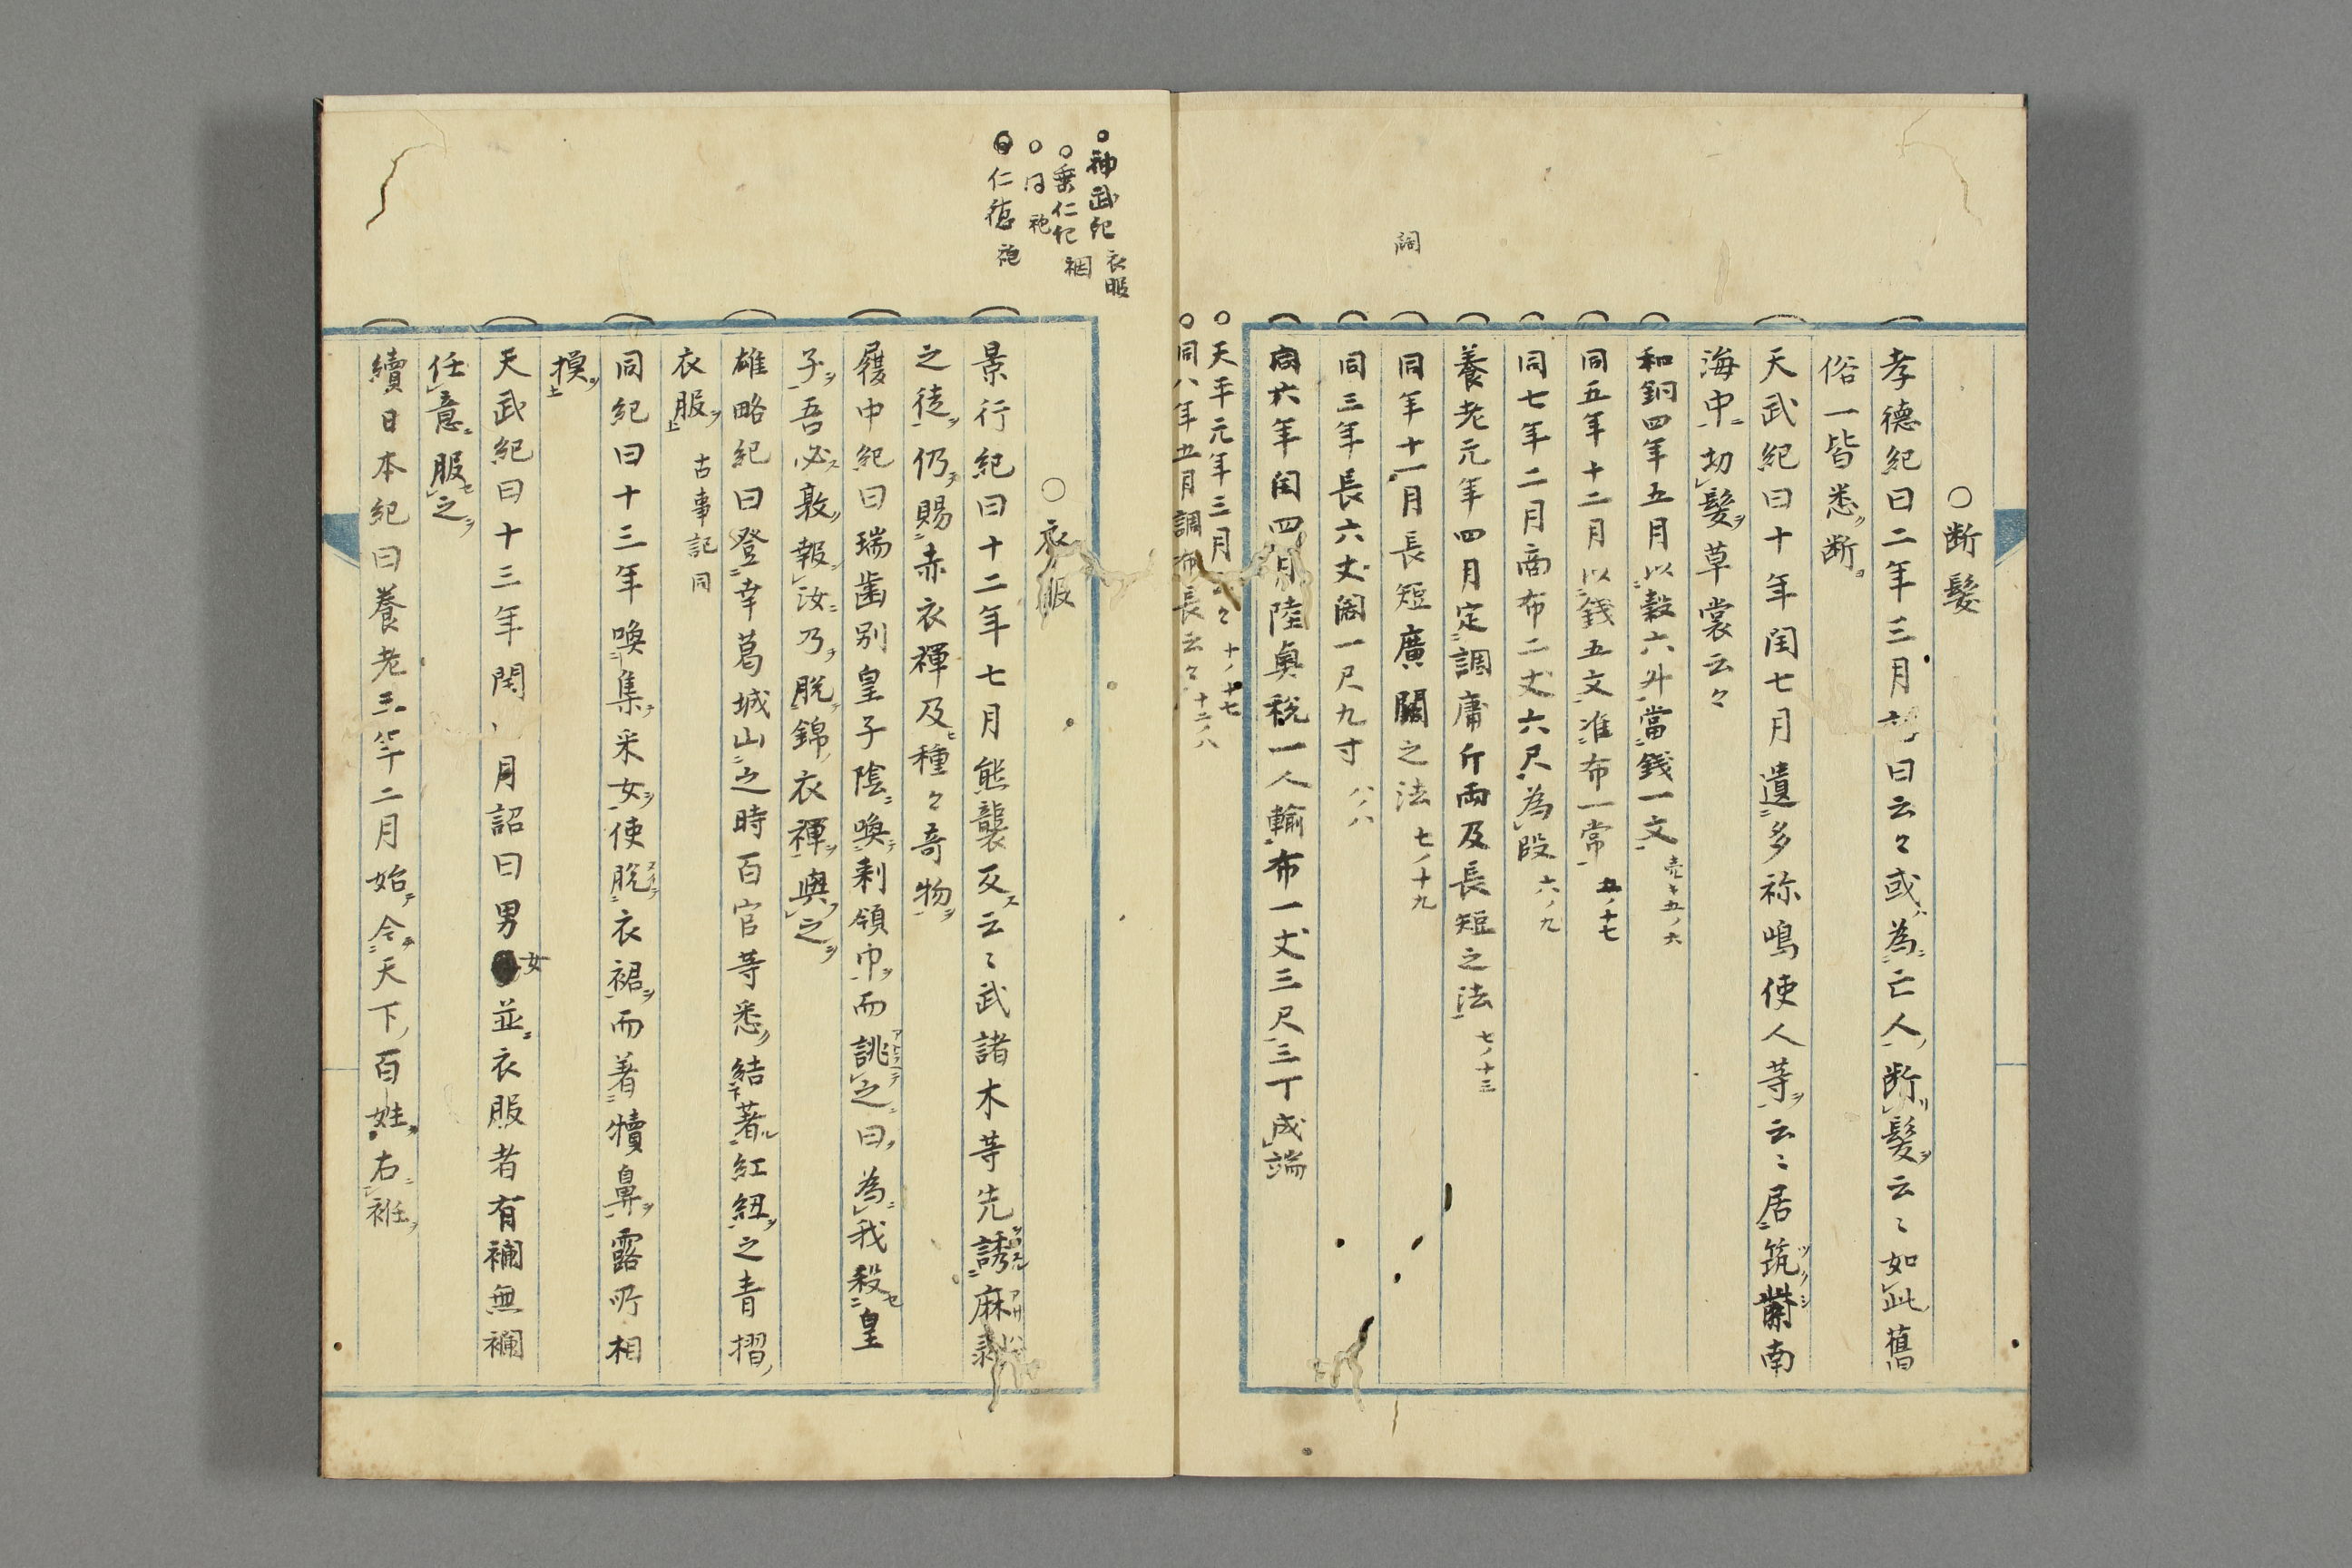 ○断髪
孝徳紀曰二年三月 曰云々或為亡人断髪云〻如此舊
俗一皆悉断
天武紀曰十年閏七月遺多祢嶋使人等云〻居筑紫南
海中切髪草裳云々
和銅四年五月以穀六升當錢一文 五ノ六
同五年十二月以錢五文准布一常 五ノ十七
同七年二月商布二丈六尺為段 六ノ九
養老元年四月定調庸斤両及長短之法 七ノ十三
同年十一月長短廣闊之法 七ノ十九
闊
同三年長六丈闊一尺九寸 八ノ八
同六年閏四月陸奥税一人輸布一丈三尺三丁成端
○天平元年三月 々 十ノ十七
○同八年五月調布長云々 十二ノ八
○神武紀 衣服
○垂仁紀 裀
○同 袘
○仁徳 袍
○衣服
景行紀曰十二年七月熊襲反云〻武諸木等先誘麻剥
之徒仍賜赤衣褌及種々奇物
履中紀曰瑞歯別皇子陰喚刺領巾而誂之曰為我殺皇
子吾必敦報汝乃脱錦衣褌與之
雄略紀曰登幸葛城山之時百官等悉結著紅紐之青摺
衣服 古事記同
同紀曰十三年喚集采女使脱衣裙而着犢鼻露所相
撲
天武紀曰十三年閏 月詔曰男女並衣服者有襴無襴
任意服之
續日本紀曰養老三年二月始令天下百姓右衽